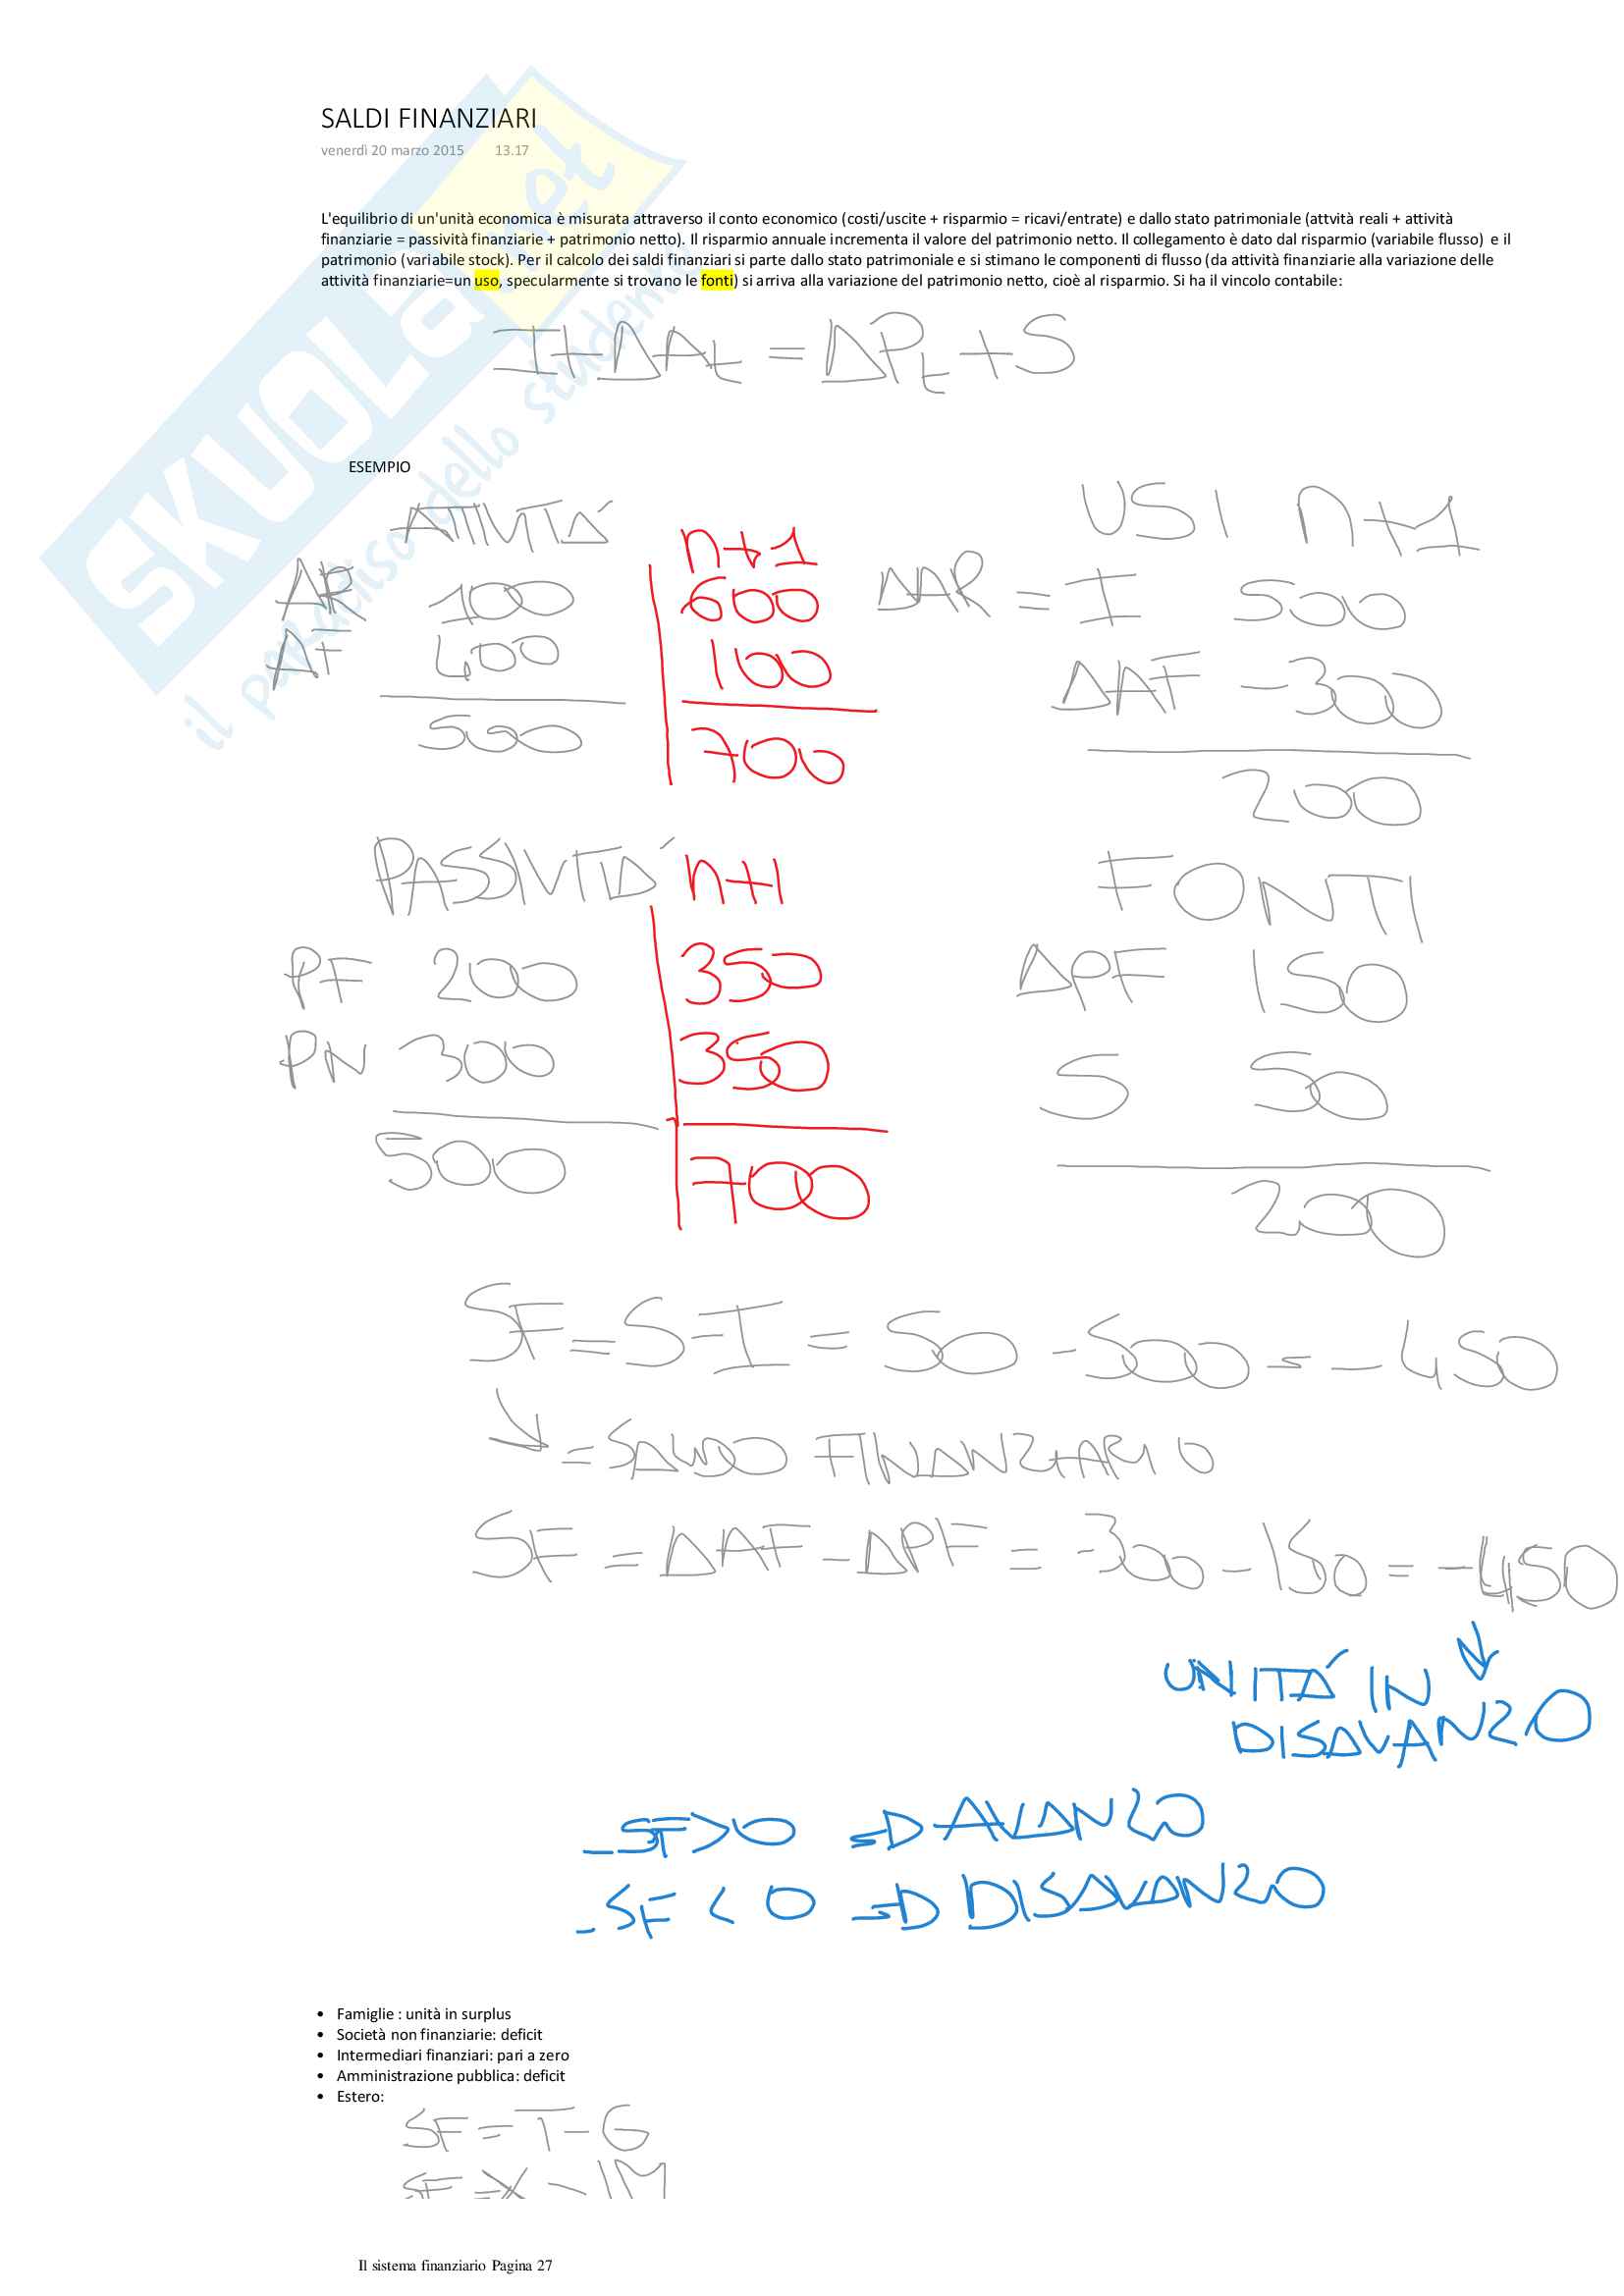 SALDI FINANZIARI
venerdì 20 marzo 2015 13.17
L'equilibrio di un'unità economica è misurata attraverso il conto economico (costi/uscite + risparmio = ricavi/entrate) e dallo stato patrimoniale (attvità reali + attività
finanziarie = passività finanziarie + patrimonio netto). Il risparmio annuale incrementa il valore del patrimonio netto. Il collegamento è dato dal risparmio (variabile flusso) e il
patrimonio (variabile stock). Per il calcolo dei saldi finanziari si parte dallo stato patrimoniale e si stimano le componenti di flusso (da attività finanziarie alla variazione delle
attività finanziarie=un uso, specularmente si trovano le fonti) si arriva alla variazione del patrimonio netto, cioè al risparmio. Si ha il vincolo contabile:
I+ΔAt = ΔPt+S
SKUOLA.net
il paradiso dello studente
ESEMPIO
ATTIVITÁ n+1 USI n+1
AR 100 600 ΔAR = I 500
AF 400 100 ΔAF -300
500 700 200
PASSIVITÁ n+1 FONTI
PF 200 350 ΔPF 150
PN 300 350 S 50
500 700 200
SF=S-I = 50 -500 = -450
= SALDO FINANZIARIO
SF = ΔAF-ΔPF = -300-150 = -450
UNITÁ IN
DISAVANZO
-SF>0 => AVANZO
-SF<0 => DISAVANZO
• Famiglie : unità in surplus
• Società non finanziarie: deficit
• Intermediari finanziari: pari a zero
• Amministrazione pubblica: deficit
• Estero:
SF=T-G
SF=X-IM
Il sistema finanziario Pagina 27